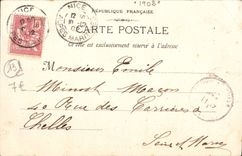 1908
RÉPUBLIQUE FRANÇAISE
CARTE POSTALE
Ce côté est exclusivement réservé à l'adresse
NICE
Monsieur Emile
Minost Maçon
40 Rue des Carrières à
Chelles
Seine et Marne
15
7€